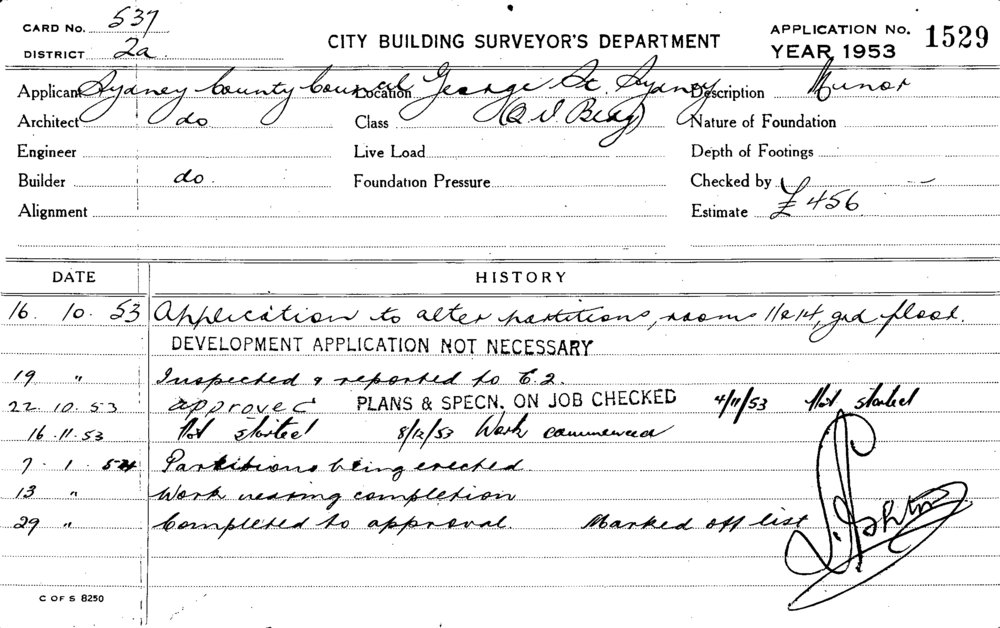 CARD No. 537
DISTRICT 2a.
CITY BUILDING SURVEYOR'S DEPARTMENT
APPLICATION No. 1529
YEAR 1953
Applicant Sydney County Council Location George St. Sydney Description Minor
Architect do Class (Q.V. Bldg) Nature of Foundation
Engineer Live Load Depth of Footings
Builder do. Foundation Pressure Checked by
Alignment Estimate £456
DATE HISTORY
16. 10. 53 Application to alter partitions, rooms 11&14, grd floor.
DEVELOPMENT APPLICATION NOT NECESSARY
19 " Inspected & reported to C.2.
22. 10. 53 approved PLANS & SPECN. ON JOB CHECKED 4/11/53 Not started
16. 11. 53 Not started 8/12/53 Work commenced
7. 1. 54 Partitions being erected
13 " Work nearing completion
29 " Completed to approval. Marked off list
C OF S 8250